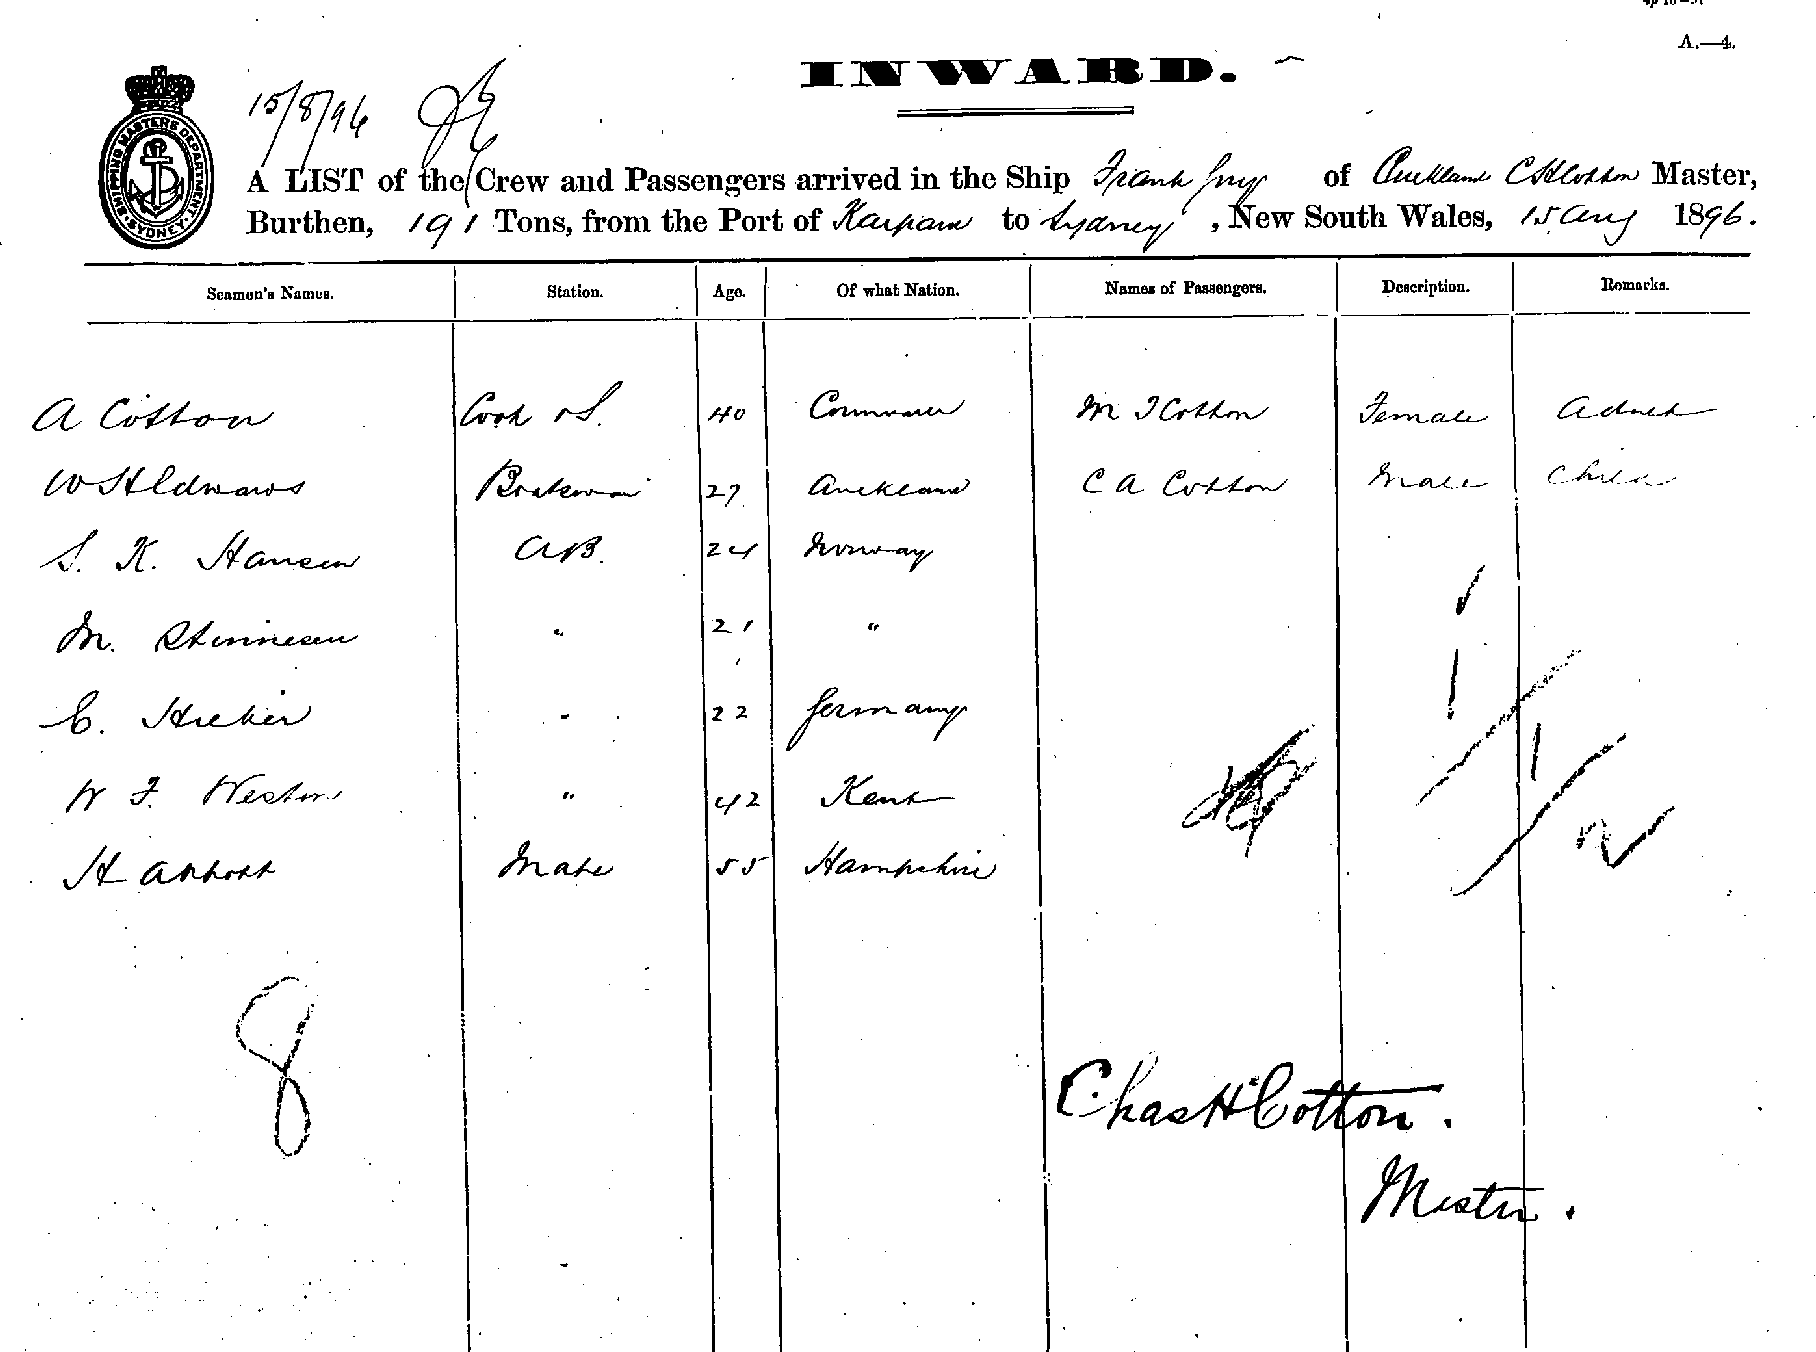 A.—4.
INWARD.
15/8/96
SHIPPING MASTERS DEPARTMENT SYDNEY
A LIST of the Crew and Passengers arrived in the Ship Frank Guy of Auckland C H Cotton Master,
Burthen, 191 Tons, from the Port of to Sydney, New South Wales, 15 Aug 1896.
Seamen's Names. Station. Age. Of what Nation. Names of Passengers. Description. Remarks.
A Cotton Cook & S. 40 M J Cotton Female Adult
W H Edwards 27 Auckland C A Cotton Male Child
S. K. Hansen A.B. 24 Norway
M. " 21 "
C. " 22 Germany
W F. Weston " 42 Kent
H Abbott Mate 55 Hampshire
1
1
1
2
8
Chas H Cotton.
Master.